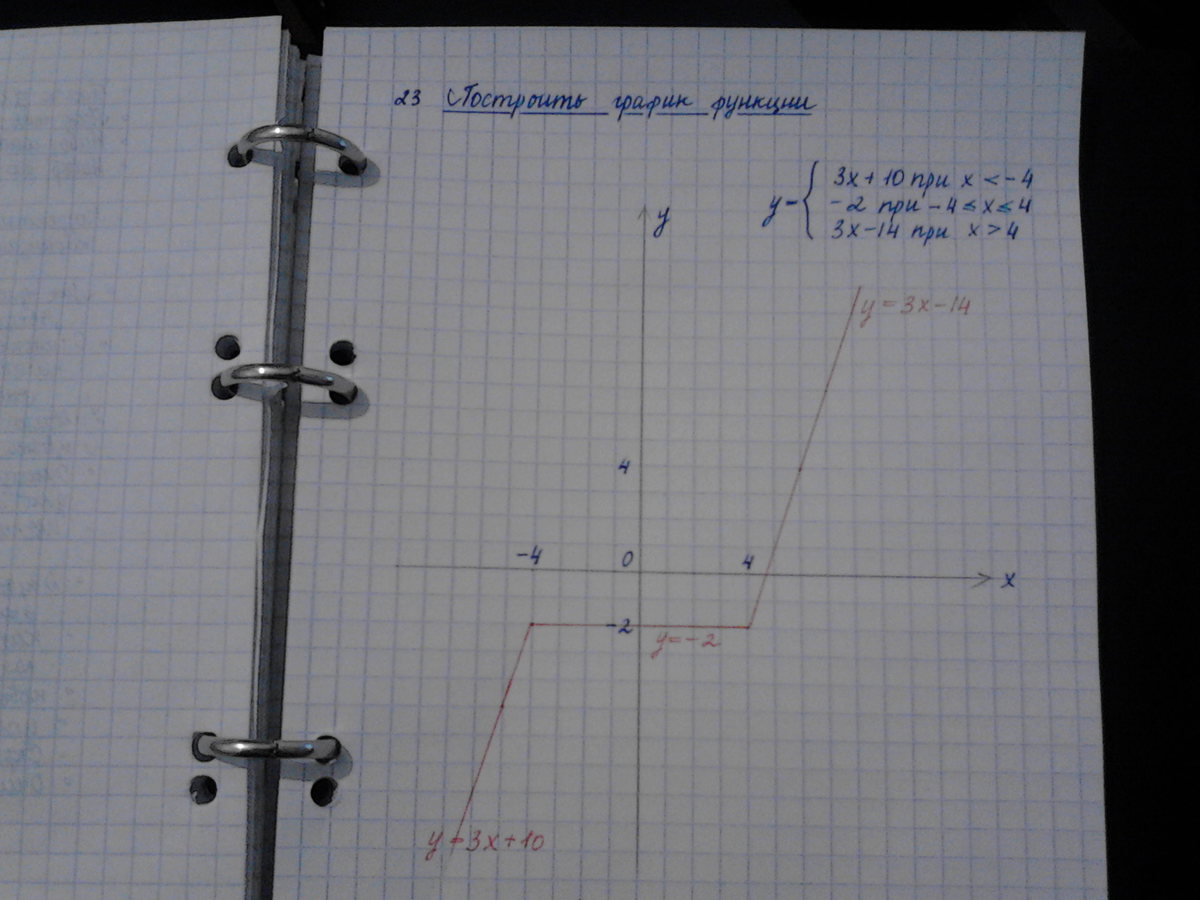 23 Построить график функции
y = { 3x + 10 при x < -4
-2 при -4 ≤ x ≤ 4
3x - 14 при x > 4
y
y = 3x - 14
4
-4 0 4 x
-2
y = -2
y = 3x + 10